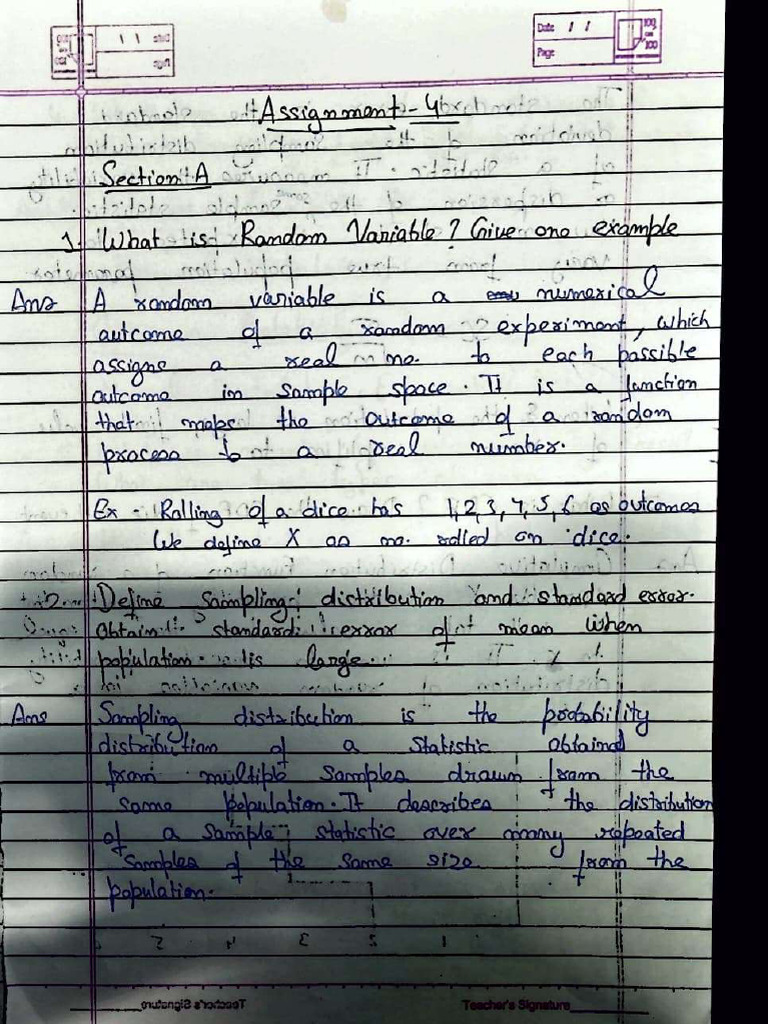 Date / /
Page
Assignment - 4
Section A
1. What is Random Variable? Give one example
Ans A random variable is a numerical
outcome of a random experiment, which
assigns a real no. to each possible
outcome in sample space. It is a function
that maps the outcome of a random
process to a real number.
Ex - Rolling of a dice has 1, 2, 3, 4, 5, 6 as outcomes
We define X as no. rolled on dice.
2. Define sampling distribution and standard error.
Obtain standard error of mean when
population is large.
Ans Sampling distribution is the probability
distribution of a statistic obtained
from multiple samples drawn from the
same population. It describes the distribution
of a sample statistic over many repeated
samples of the same size from the
population.
Teacher's Signature